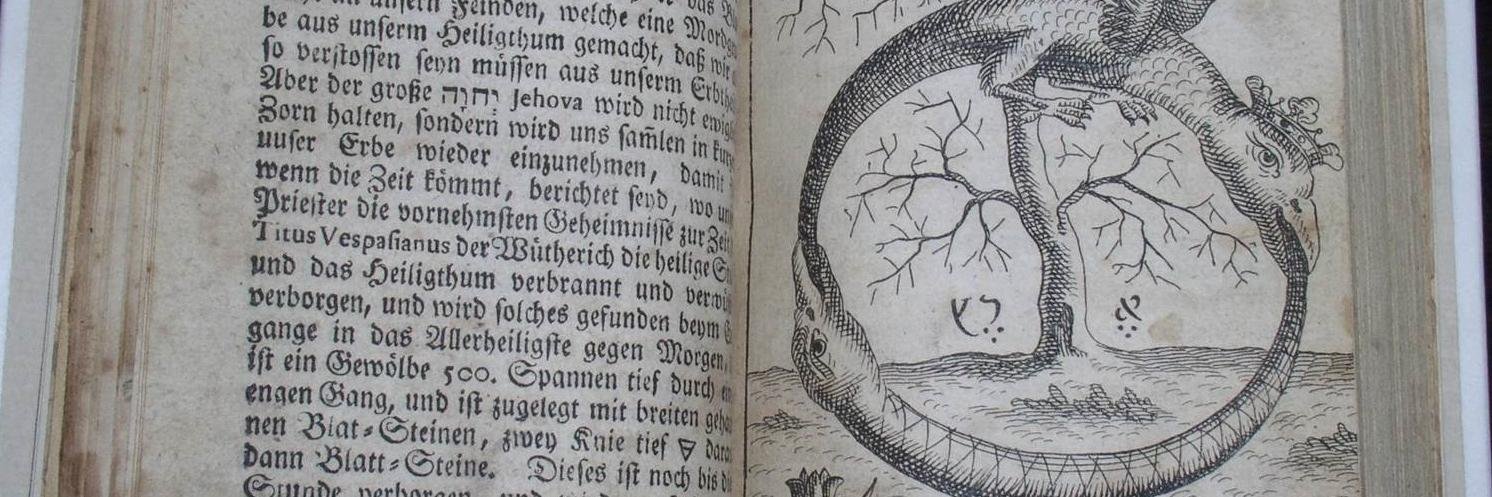 an unsern Feinden, welche eine
be aus unserm Heiligthum gemacht, daß wir
so verstossen seyn müssen aus unserm
Aber der große יהוה Jehova wird nicht
Zorn halten, sondern wird uns sam̃len in
unser Erbe wieder einzunehmen, damit
wenn die Zeit kömmt, berichtet seyd, wo
Priester die vornehmsten Geheimnisse zur Zeit
Titus Vespasianus der Wütherich die heilige
und das Heiligthum verbrannt und
verborgen, und wird solches gefunden beym
gange in das Allerheiligste gegen Morgen,
ist ein Gewölbe 500. Spannen tief durch
engen Gang, und ist zugelegt mit breiten
nen Blat⸗Steinen, zwey Knie tief 🜄
dann Blatt⸗Steine. Dieses ist noch bis
Stunde verborgen, und
א
רץ